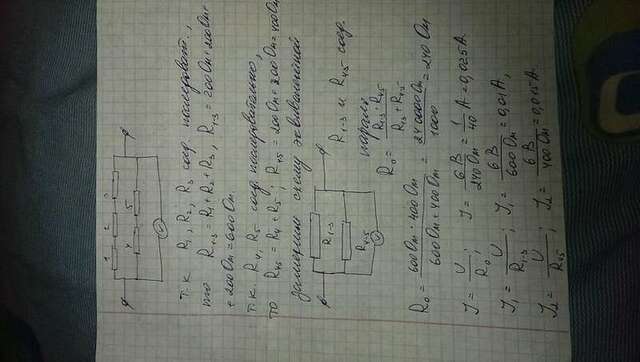 1 2 3
4 5
V
т.к. R₁, R₂, R₃ соед. последоват.,
то R₁₋₃ = R₁ + R₂ + R₃, R₁₋₃ = 200 Ом + 200 Ом +
+ 200 Ом = 600 Ом
т.к. R₄, R₅ соед. последовательно,
то R₄,₅ = R₄ + R₅; R₄,₅ = 200 Ом + 200 Ом = 400 Ом
заменим схему эквивалентной
R₁₋₃
R₄₋₅
V
R₁₋₃ и R₄,₅ соед.
паралл.
R₀ = R₁₋₃ · R₄,₅ / R₁₋₃ + R₄,₅
R₀ = 600 Ом · 400 Ом / 600 Ом + 400 Ом = 240000 Ом / 1000 = 240 Ом
I = U / R₀; I = 6 В / 240 Ом = 1 / 40 А = 0,025 А.
I₁ = U / R₁₋₃; I₁ = 6 В / 600 Ом = 0,01 А,
I₂ = U / R₄,₅; I₂ = 6 В / 400 Ом = 0,015 А.